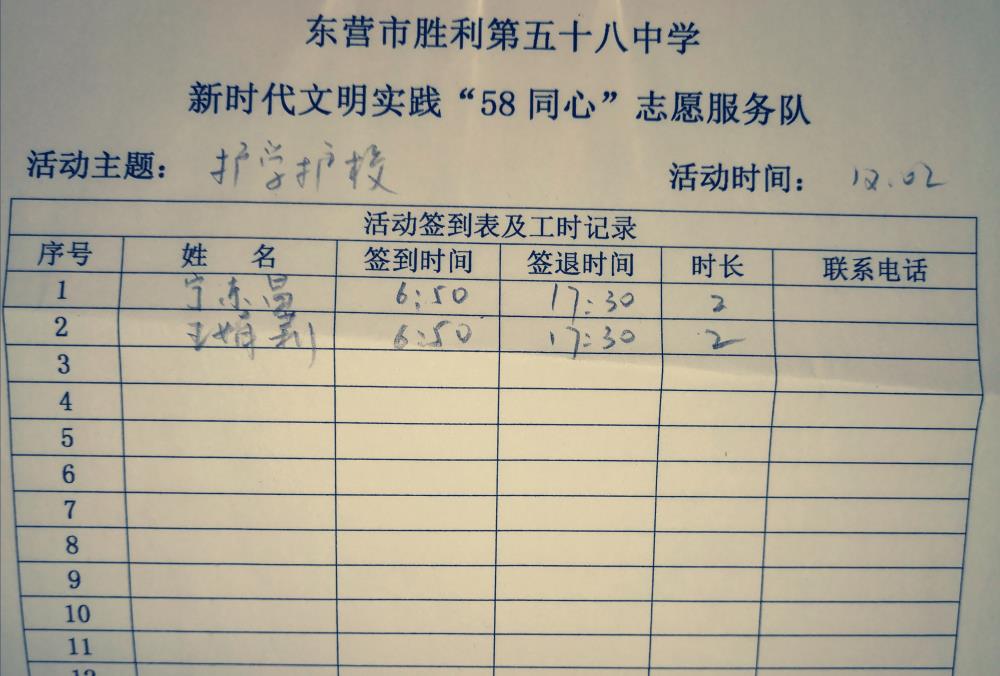 东营市胜利第五十八中学
新时代文明实践“58同心”志愿服务队
活动主题： 护学护校 活动时间： 12.02
活动签到表及工时记录
序号 姓 名 签到时间 签退时间 时长 联系电话
1 宁东昌 6:50 17:30 2
2 王娟利 6:50 17:30 2
3
4
5
6
7
8
9
10
11
12